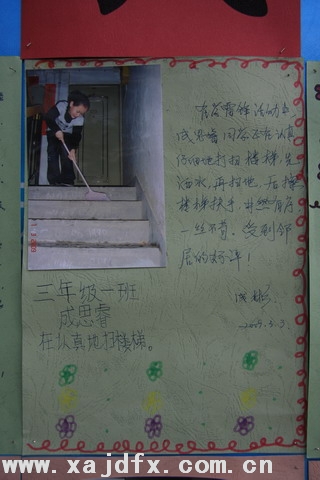 在学雷锋活动中,
成思睿同学正在认真
仔细地打扫楼梯,先
洒水,再扫地,后擦
楼梯扶手,
一丝不苟,受到邻
居的好评!
三年级一班
成思睿
在认真地扫楼梯。
www.xajdfx.com.cn